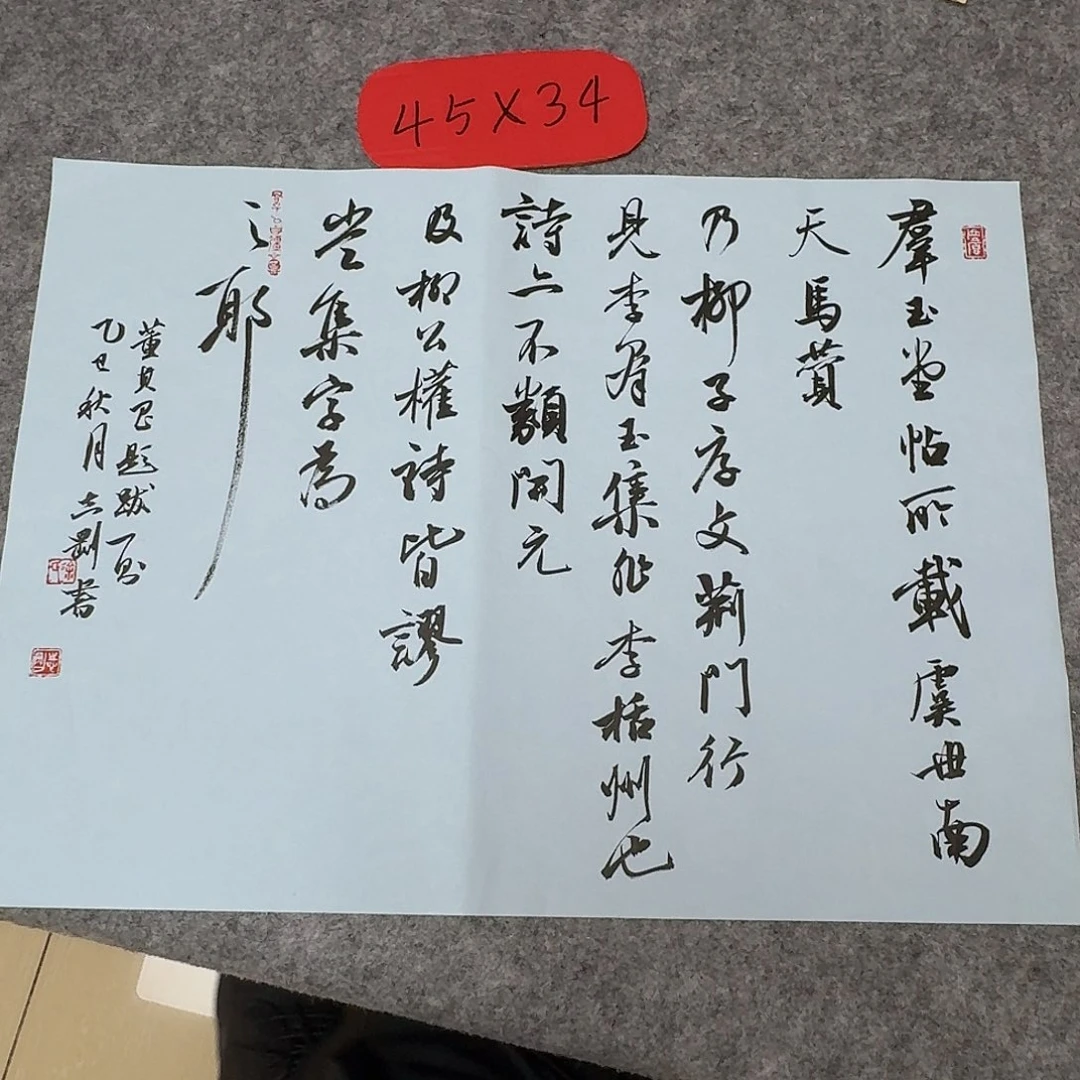 45X34
羣玉堂帖所載虞世南
天馬賛
乃柳子厚文荊門行
見李君玉集非李栝州也
詩亦不類開元
及柳公權詩皆謬
豈集字為
之耶
董其昌題跋一則
乙巳秋月志剛書